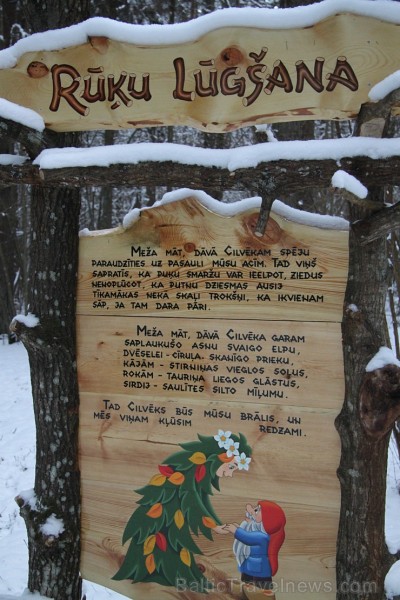 RŪĶU LŪGŠANA
MEŽA MĀT, DĀVĀ CILVĒKAM SPĒJU
PARAUDZĪTIES UZ PASAULI MŪSU ACĪM. TAD VIŅŠ
SAPRATĪS, KA PUĶU SMARŽU VAR IEELPOT, ZIEDUS
NENOPLŪCOT, KA PUTNU DZIESMAS AUSIJ
TĪKAMĀKAS NEKĀ SKAĻI TROKŠŅI, KA IKVIENAM
SĀP, JA TAM DARA PĀRI.
MEŽA MĀT, DĀVĀ CILVĒKA GARAM
SAPLAUKUŠO ASNU SVAIGO ELPU,
DVĒSELEI - CĪRUĻA SKANĪGO PRIEKU,
KĀJĀM - STIRNIŅAS VIEGLOS SOĻUS,
ROKĀM - TAURIŅA LIEGOS GLĀSTUS,
SIRDIJ - SAULĪTES SILTO MĪĻUMU.
TAD CILVĒKS BŪS MŪSU BRĀLIS, UN
MĒS VIŅAM KĻŪSIM REDZAMI.
BalticTravelnews.com